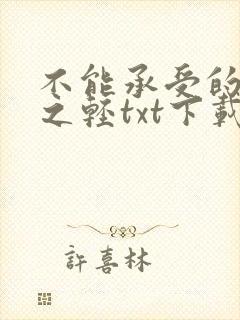 不能承受的
之輕txt下載
許喜林